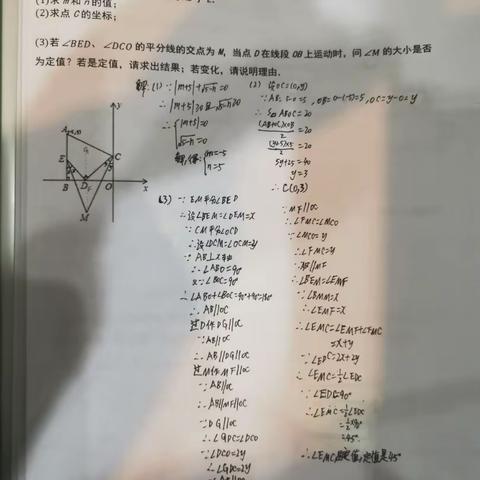 (1)求 m 和 n 的值;
(2)求点 C 的坐标;
(3)若 ∠BED、∠DCO 的平分线的交点为 M, 当点 D 在线段 OB 上运动时, 问 ∠M 的大小是否
为定值? 若是定值, 请求出结果; 若变化, 请说明理由.
解:(1) ∵|m+5|+√5-n=0
∴|m+5|≥0且√5-n≥0
∴{|m+5|=0
√5-n=0
解得:{m=-5
n=5
(2) 设OC=(0,y)
∵AB=5-0=5, OB=0-(-5)=5, OC=y-0=y
∴ S ABOC=20
(AB+OC)×OB/2=20
(5+y)×5/2=20
5y+25=40
y=3
∴C(0,3)
y
A
E
C
B
D
O
x
M
(3) ∵EM平分∠BED
∴设∠BEM=∠DEM=x
∵CM平分∠OCD
∴设∠DCM=∠OCM=y
∵AB⊥x轴
∴∠ABO=90°
又∵∠BOC=90°
∴∠ABO+∠BOC=90°+90°=180°
∴AB//OC
过D作DG//OC
∵AB//OC
∴AB//DG//OC
过M作MF//OC
∵AB//OC
∴AB//MF//OC
∵DG//OC
∴∠GDC=∠DCO
∵∠DCO=2y
∴∠GDC=2y
∵AB//DG
∵MF//OC
∴∠FMC=∠MCO
∵∠MCO=y
∴∠FMC=y
∵AB//MF
∴∠BEM=∠EMF
∵∠BEM=x
∴∠EMF=x
∴∠EMC=∠EMF+∠FMC
=x+y
∵∠EDC=2x+2y
∴∠EMC=½∠EDC
∵∠EDC=90°
∴∠EMC=½∠EDC
=½×90°
=45°
∴∠EMC是定值,定值是45°